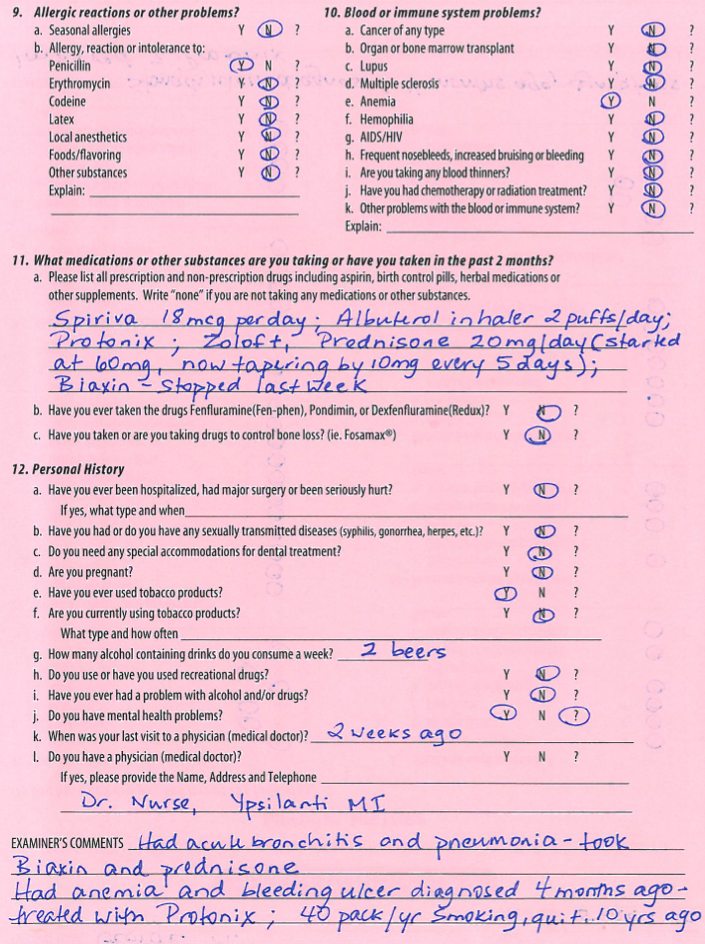 9. Allergic reactions or other problems?
a. Seasonal allergies Y N ?
b. Allergy, reaction or intolerance to:
Penicillin Y N ?
Erythromycin Y N ?
Codeine Y N ?
Latex Y N ?
Local anesthetics Y N ?
Foods/flavoring Y N ?
Other substances Y N ?
Explain:
10. Blood or immune system problems?
a. Cancer of any type Y N ?
b. Organ or bone marrow transplant Y N ?
c. Lupus Y N ?
d. Multiple sclerosis Y N ?
e. Anemia Y N ?
f. Hemophilia Y N ?
g. AIDS/HIV Y N ?
h. Frequent nosebleeds, increased bruising or bleeding Y N ?
i. Are you taking any blood thinners? Y N ?
j. Have you had chemotherapy or radiation treatment? Y N ?
k. Other problems with the blood or immune system? Y N ?
Explain:
11. What medications or other substances are you taking or have you taken in the past 2 months?
a. Please list all prescription and non-prescription drugs including aspirin, birth control pills, herbal medications or
other supplements. Write "none" if you are not taking any medications or other substances.
Spiriva 18mcg per day; Albuterol inhaler 2 puffs/day;
Protonix; Zoloft, Prednisone 20mg/day (started
at 60mg, now tapering by 10mg every 5 days);
Biaxin - Stopped last week
b. Have you ever taken the drugs Fenfluramine(Fen-phen), Pondimin, or Dexfenfluramine(Redux)? Y N ?
c. Have you taken or are you taking drugs to control bone loss? (ie. Fosamax®) Y N ?
12. Personal History
a. Have you ever been hospitalized, had major surgery or been seriously hurt? Y N ?
If yes, what type and when
b. Have you had or do you have any sexually transmitted diseases (syphilis, gonorrhea, herpes, etc.)? Y N ?
c. Do you need any special accommodations for dental treatment? Y N ?
d. Are you pregnant? Y N ?
e. Have you ever used tobacco products? Y N ?
f. Are you currently using tobacco products? Y N ?
What type and how often
g. How many alcohol containing drinks do you consume a week? 2 beers
h. Do you use or have you used recreational drugs? Y N ?
i. Have you ever had a problem with alcohol and/or drugs? Y N ?
j. Do you have mental health problems? Y N ?
k. When was your last visit to a physician (medical doctor)? 2 weeks ago
l. Do you have a physician (medical doctor)? Y N ?
If yes, please provide the Name, Address and Telephone
Dr. Nurse, Ypsilanti MI
EXAMINER'S COMMENTS Had acute bronchitis and pneumonia - took
Biaxin and prednisone
Had anemia and bleeding ulcer diagnosed 4 months ago -
treated with Protonix; 40 pack/yr smoking, quit 10 yrs ago